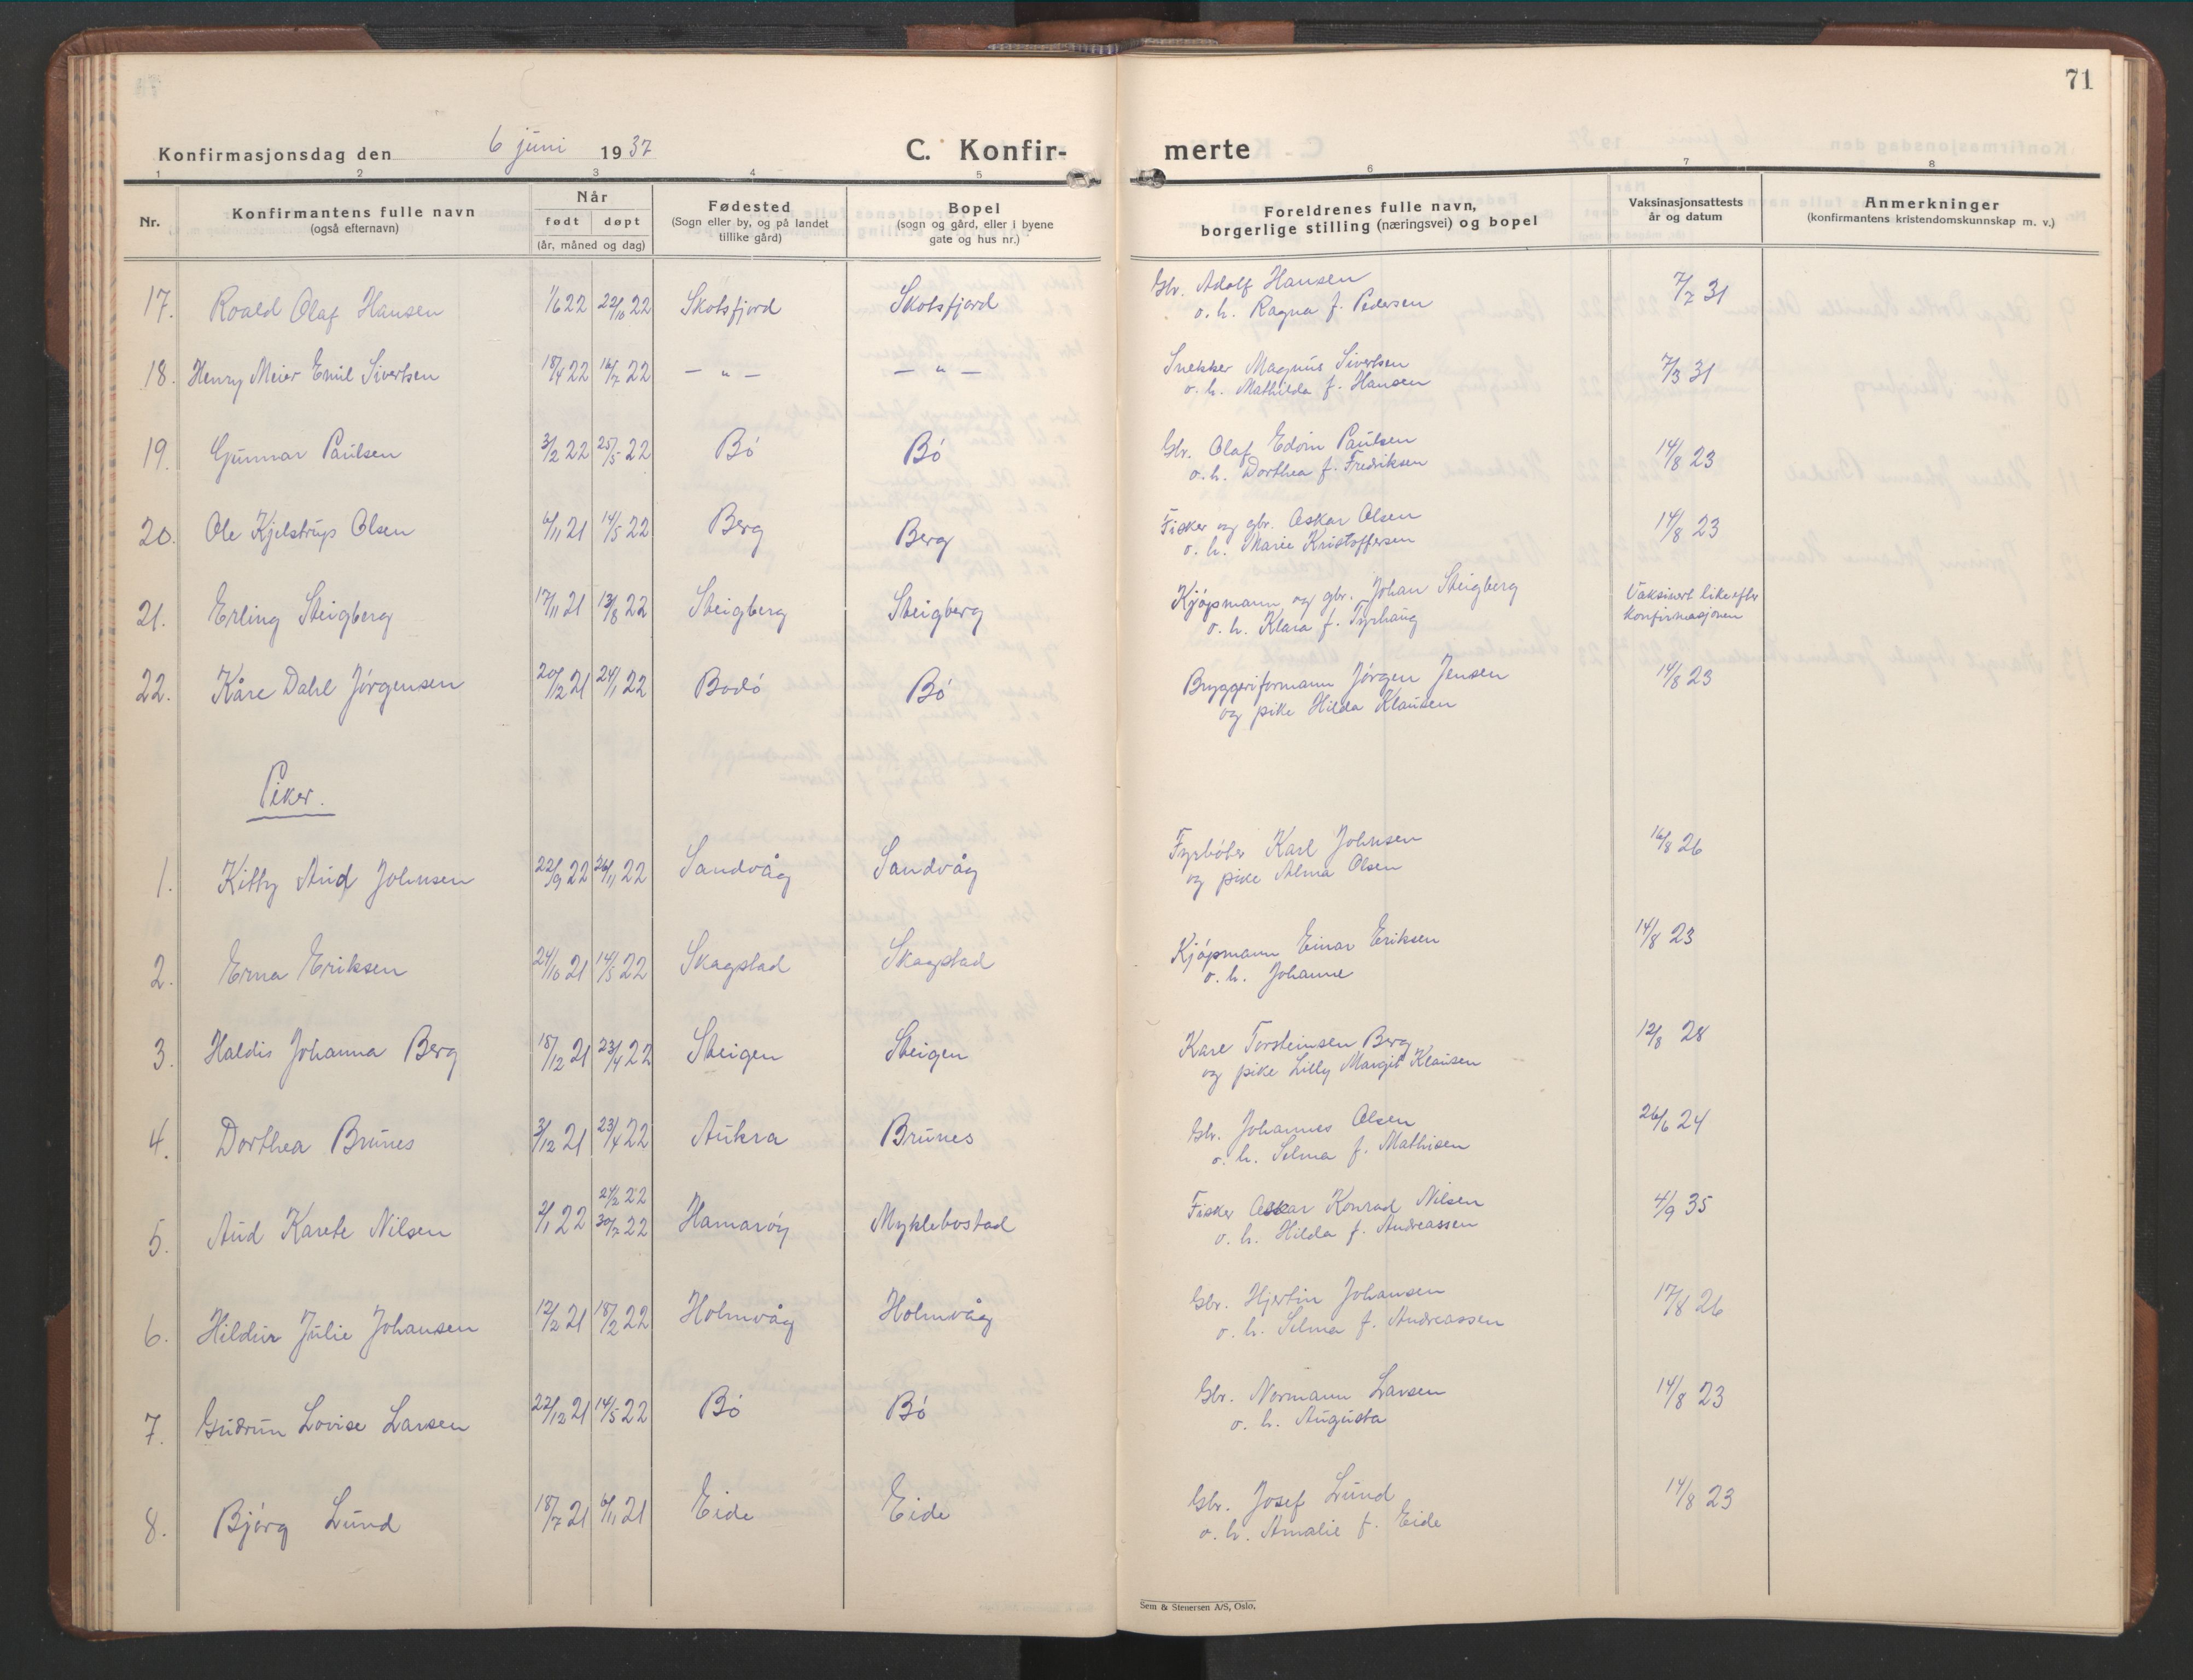 71
Konfirmasjonsdag den 6 juni 1937
C. Konfirmerte
1 2 3 4 5 6 7 8
Nr. | Konfirmantens fulle navn (også efternavn) | Når født | døpt (år, måned og dag) | Fødested (Sogn eller by, og på landet tillike gård) | Bopel (sogn og gård, eller i byene gate og hus nr.) | Foreldrenes fulle navn, borgerlige stilling (næringsvei) og bopel | Vaksinasjonsattests år og datum | Anmerkninger (konfirmantens kristendomskunnskap m. v.)
17. Roald Olaf Hansen 1/6 22 22/10 22 Skotsfjord Skotsfjord Gbr. Adolf Hansen
o. h. Ragna f. Pedersen 7/7 31
18. Henry Meier Emil Sivertsen 18/4 22 16/7 22 — " — — " — Snekker Magnus Sivertsen
o. h. Mathilda f. Hansen 7/3 31
19. Gunnar Paulsen 3/2 22 25/5 22 Bö Bö Gbr. Olaf Edvin Paulsen
o. h. Dorthea f. Fredriksen 14/8 23
20. Ole Kjelstrup Olsen 6/11 21 14/5 22 Berg Berg Fisker og gbr. Oskar Olsen
o. h. Marie Kristoffersen 14/8 23
21. Erling Steigberg 17/11 21 13/8 22 Steigberg Steigberg Kjöpmann og gbr. Johan Steigberg
o. h. Klara f. Tyrhaug Vaksinert like efter
konfirmasjonen
22. Kåre Dahl Jörgensen 20/12 21 24/1 22 Bodö Bö Bryggeriformann Jörgen Jensen
og pike Hilda Klausen 14/8 23
Piker.
1. Kitty Aud Johnsen 22/9 22 26/11 22 Sandvåg Sandvåg Fyrböter Karl Johnsen
og pike Alma Olsen 16/8 26
2. Erna Eriksen 24/10 21 14/5 22 Skagstad Skagstad Kjöpmann Einar Eriksen
o. h. Johanne 14/8 23
3. Haldis Johanna Berg 18/12 21 23/4 22 Steigen Steigen Kare Torsteinsen Berg
og pike Lilly Margit Klausen 12/8 28
4. Dorthea Brunes 3/12 21 23/4 22 Aukra Brunes Gbr. Johannes Olsen
o. h. Selma f. Mathisen 26/6 24
5. Aud Karete Nilsen 2/1 22 24/2 22 30/7 22 Hamaröy Myklebostad Fisker Oskar Konrad Nilsen
o. h. Hilda f. Andreassen 4/9 35
6. Hildur Julie Johansen 12/2 21 18/2 22 Holmvåg Holmvåg Gbr. Hjertin Johansen
o. h. Selma f. Andreassen 17/8 26
7. Gudrun Lovise Larsen 22/12 21 14/5 22 Bö Bö Gbr. Normann Larsen
o. h. Augusta 14/8 23
8. Bjørg Lund 18/7 21 6/11 21 Eide Eide Gbr. Josef Lund
o. h. Amalie f. Eide 14/8 23
Sem & Stenersen A/S, Oslo.